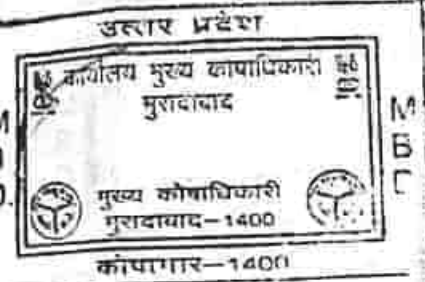 उत्तर प्रदेश
कार्यालय मुख्य कोषाधिकारी
मुरादाबाद
M
B
D
मुख्य कोषाधिकारी
मुरादाबाद–1400
कोषागार–1400